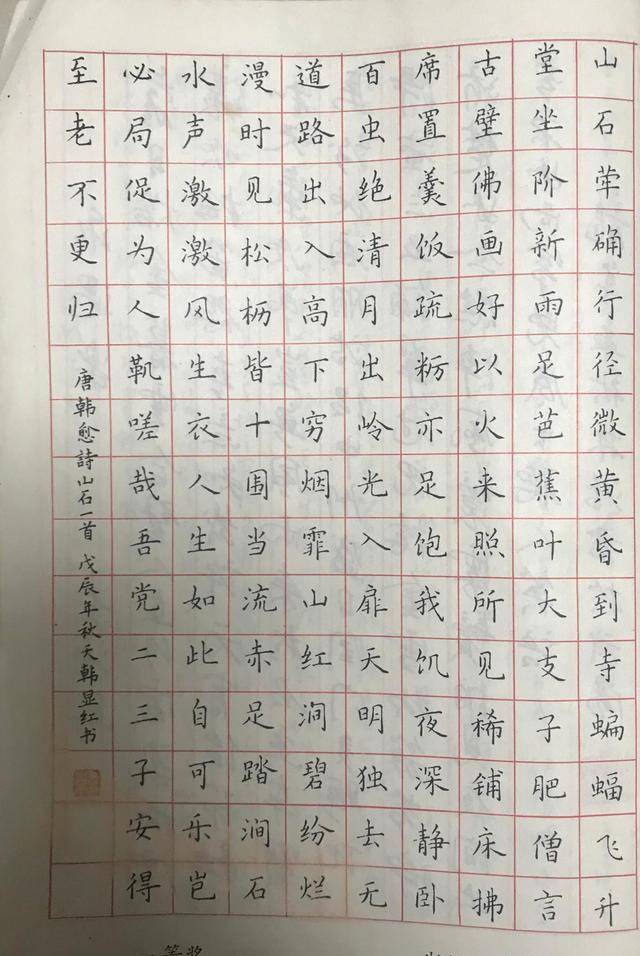 山石荦确行径微黄昏到寺蝙蝠飞升
堂坐阶新雨足芭蕉叶大支子肥僧言
古壁佛画好以火来照所见稀铺床拂
席置羹饭疏粝亦足饱我饥夜深静卧
百虫绝清月出岭光入扉天明独去无
道路出入高下穷烟霏山红涧碧纷烂
漫时见松枥皆十围当流赤足踏涧石
水声激激风生衣人生如此自可乐岂
必局促为人鞿嗟哉吾党二三子安得
至老不更归
唐韩愈詩山石一首 戊辰年秋天韩显红书
等奖